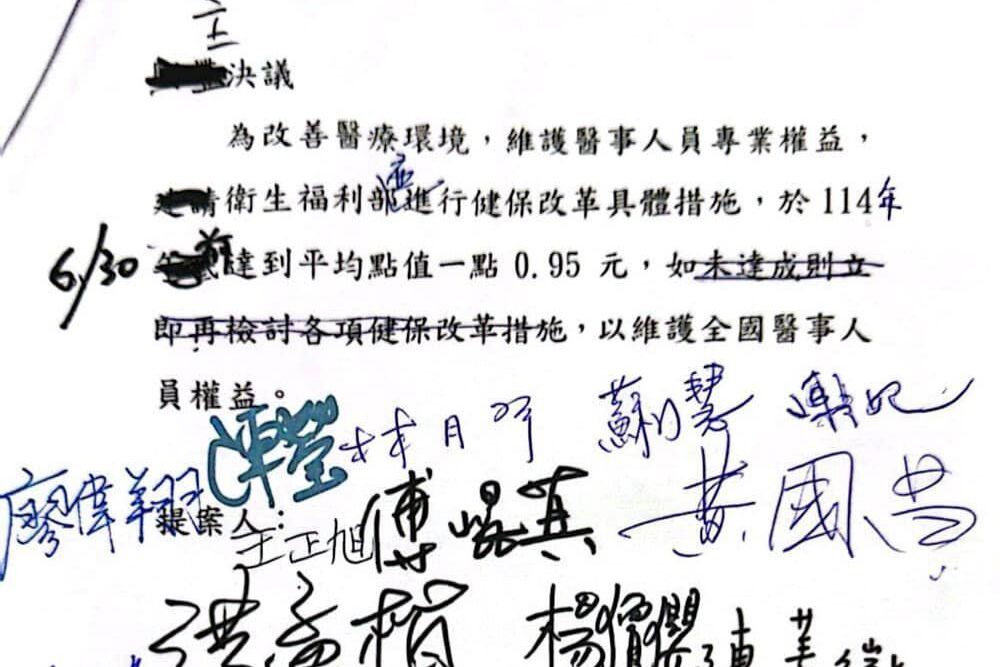 主
決議
為改善醫療環境，維護醫事人員專業權益，
衛生福利部應進行健保改革具體措施，於114年
6/30前達到平均點值一點0.95元，如未達成則立
即再檢討各項健保改革措施，以維護全國醫事人
員權益。
林月琴 蘇巧慧
廖偉翔
提案人：
王正旭 傅崐萁 黃國昌
洪孟楷 楊瓊瓔 陳菁徽